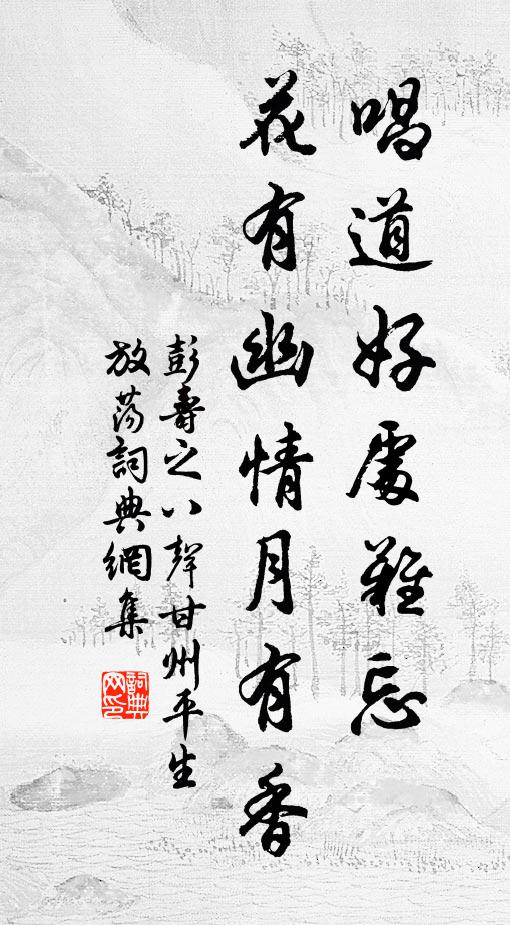 唱道好處難忘
花有幽情月有香
彭壽之八聲甘州平生
放蕩詞典網集
詞典网印